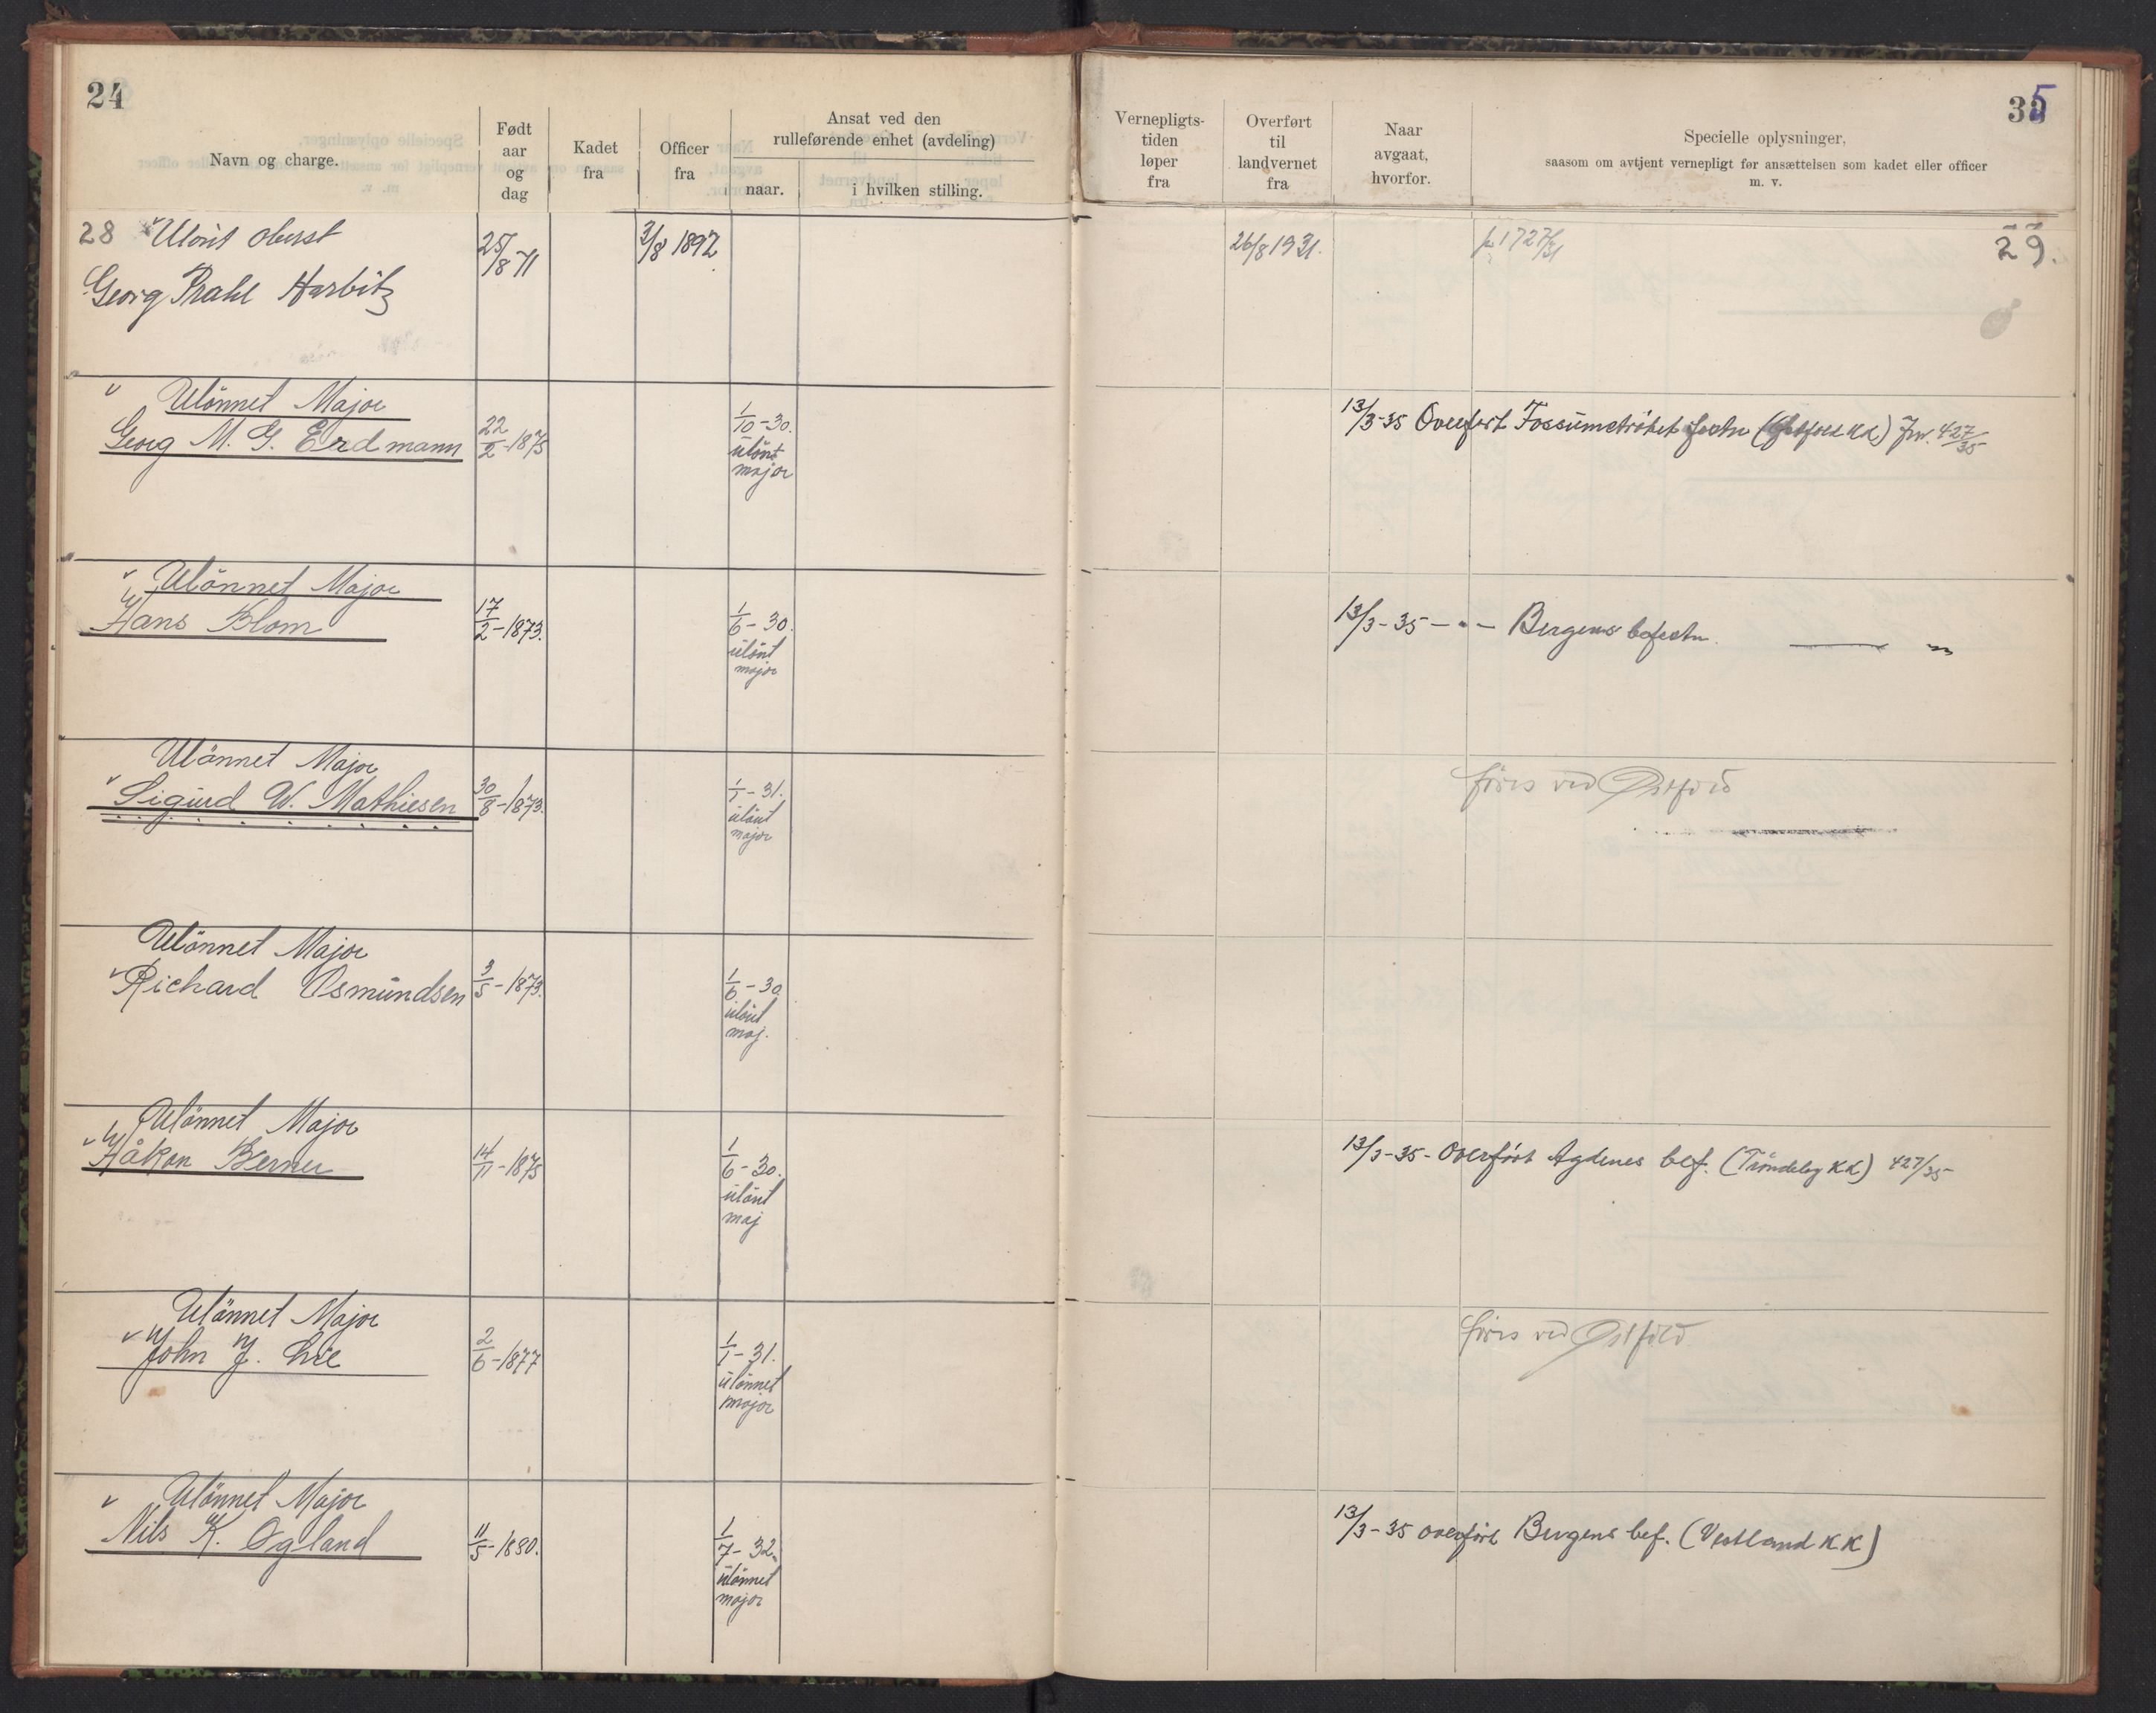 24
Navn og charge.
Født
aar
og
dag
Kadet
fra
Officer
fra
Ansat ved den
rulleførende enhet (avdeling)
naar.
i hvilken stilling.
Vernepligts-
tiden
løper
fra
Overført
til
landvernet
fra
Naar
avgaat,
hvorfor.
Specielle oplysninger,
saasom om avtjent vernepligt før ansættelsen som kadet eller officer
m. v.
35
28 Ulönt oberst
Georg Prahl Harbitz
25/8 71
3/8 1897
26/8 1931.
29.
Ulönnet Major
Georg M. G. Erdmann
22/2-1875
1/10-30.
ulönt
major
13/3-35 Overfört Fossumströket festn (Østfold KK) Jnr. 427/35
Ulönnet Major
Hans Blom
17/2-1873.
1/6-30.
ulönt
major
13/3-35 - " - Bergens befestn. — "
Ulönnet Major
Sigurd W. Mathiesen
30/8-1873.
1/1-31.
ulönt
major
föres ved Østfold
Ulönnet Major
Richard Osmundsen
3/5-1873.
1/6-30
ulönt
maj.
Ulönnet Major
Håkon Berner
14/11-1875
1/6-30.
ulönt
maj
13/3-35- Overfört Agdenes bef. (Tröndelag KK) 427/35
Ulönnet Major
John J. Lie
2/6-1877
1/1-31.
ulönnet
major
föres ved Østfold
Ulönnet Major
Nils K. Ogland
11/5-1880.
1/7-32.
ulönnet
major
13/3-35 overfört Bergens bef. (Vestland KK)